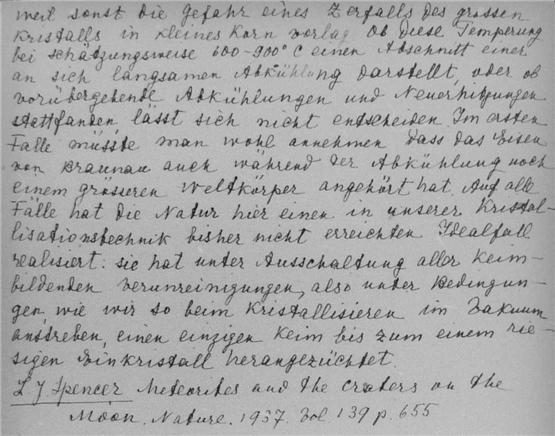 weil sonst die Gefahr eines Zerfalls des grossen
Kristalls in kleines Korn vorlag Ob diese Temperung
bei schätzungsweise 600-900° C einen Abschnitt einer
an sich langsamen Abkühlung darstellt, oder ob
vorübergehende Abkühlungen und Neuerhitzungen
stattfanden lässt sich nicht entscheiden Im ersten
Falle müsste man wohl annehmen dass das Eisen
von Braunau auch während der Abkühlung noch
einem grösseren Weltkörper angehört hat. Auf alle
Fälle hat die Natur hier einen in unserer Kristal-
lisationstechnik bisher nicht erreichten Idealfall
realisiert: sie hat unter Ausschaltung aller keim-
bildenden Verunreinigungen, also unter Bedingun-
gen, wie wir so beim Kristallisieren im Vakuum
anstreben, einen einzigen Keim bis zum einem rie-
sigen Einkristall herangezüchtet
L. J. Spencer Meteorites and the craters on the
Moon. Nature. 1937. Vol. 139 p. 655